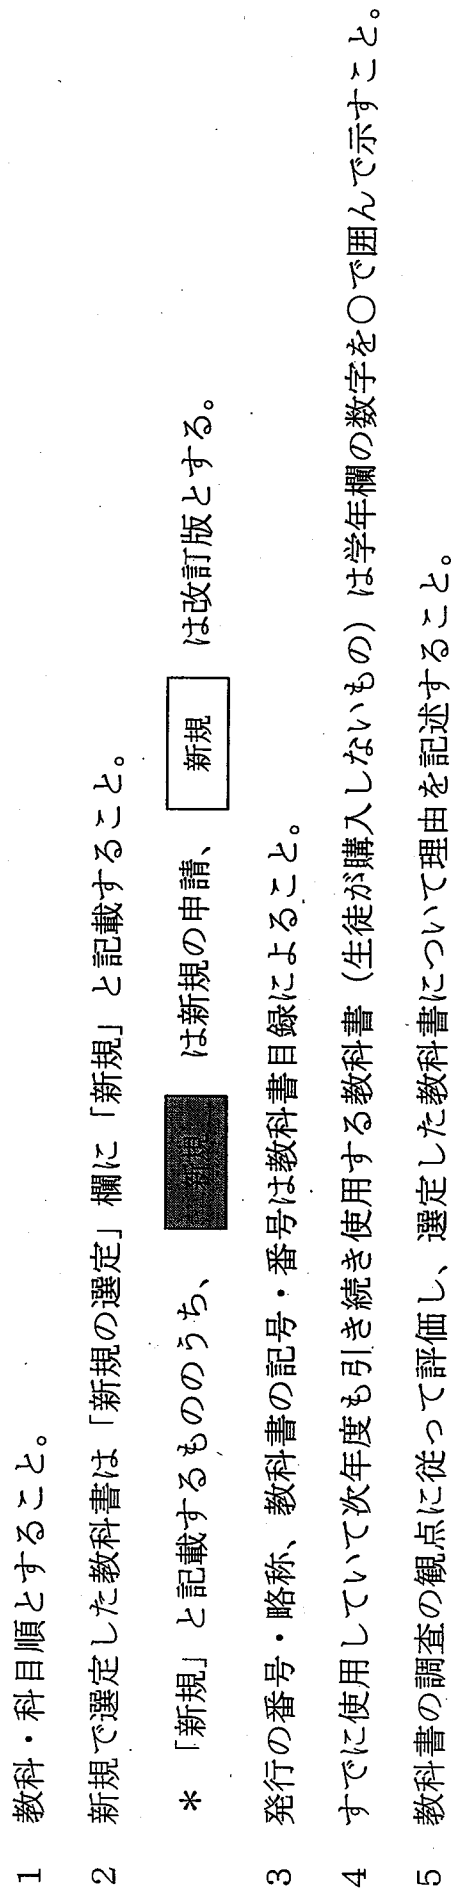 1 教科・科目順とすること。
2 新規で選定した教科書は「新規の選定」欄に「新規」と記載すること。
＊ 「新規」と記載するもののうち、 新規 は新規の申請、 新規 は改訂版とする。
3 発行の番号・略称、教科書の記号・番号は教科書目録によること。
4 すでに使用していて次年度も引き続き使用する教科書（生徒が購入しないもの）は学年欄の数字を○で囲んで示すこと。
5 教科書の調査の観点に従って評価し、選定した教科書について理由を記述すること。